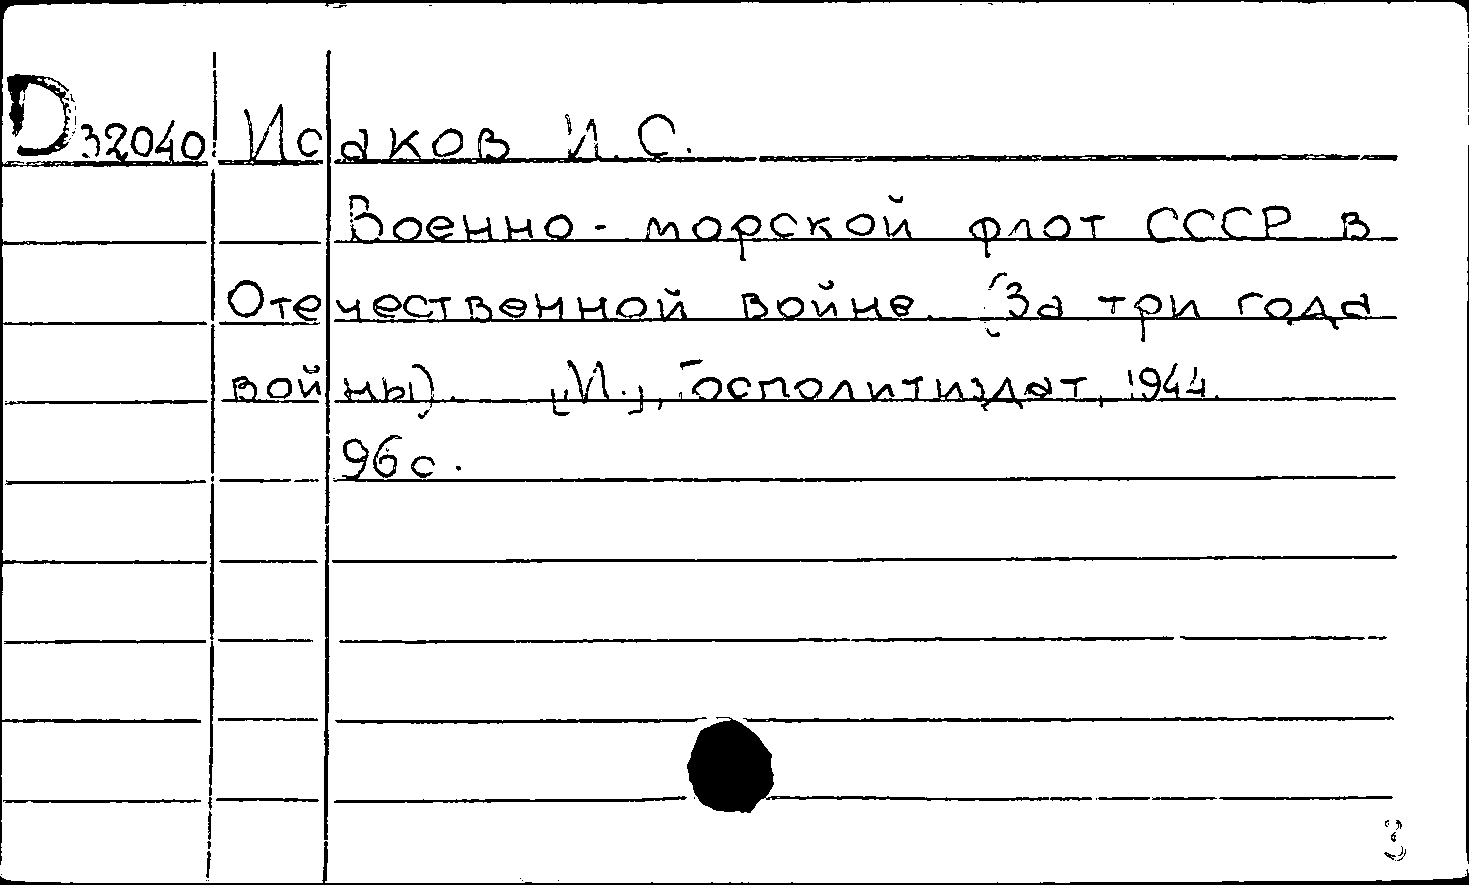 D32040 Исаков И. С.
Военно-морской флот СССР в
Отечественной войне. (За три года
войны). [М.], Госполитиздат, 1944.
96 с.
3